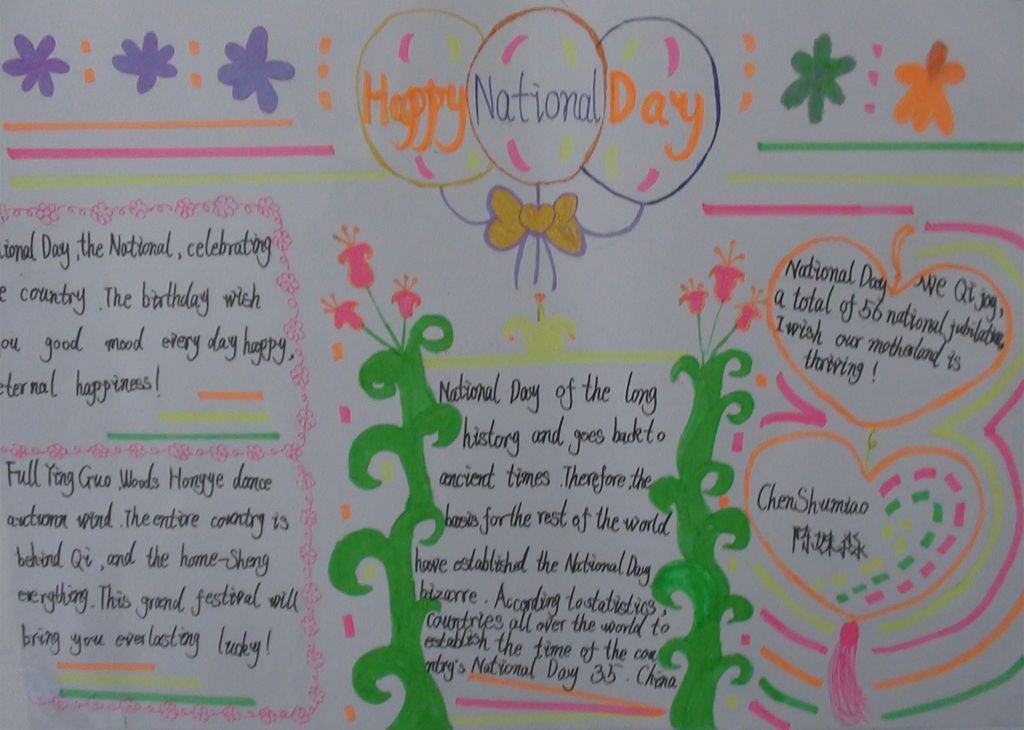 Happy National Day
ional Day, the National, celebrating
e country. The birthday wish
ou good mood every day happy,
eternal happiness!
Full Ying Guo, Woods Hongye dance
autumn wind. The entire country is
behind Qi, and the home-Sheng
everything. This grand festival will
bring you everlasting lucky!
National Day of the long
history and goes back to
ancient times. Therefore, the
basis for the rest of the world
have established the National Day
bizarre. According to statistics,
countries all over the world to
establish the time of the cou
ntry's National Day 35. China
National Day We Qi joy,
a total of 56 national jubilation,
I wish our motherland is
thriving!
ChenShumiao
陈姝淼